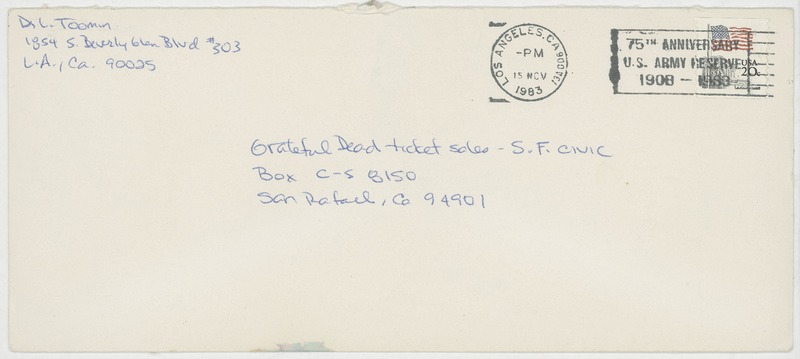 Dr L. Toomin
1854 S. Beverly Glen Blvd #303
L.A., Ca. 90025
LOS ANGELES, CA
-PM
15 NOV
1983
75TH ANNIVERSARY
U.S. ARMY RESERVE
1908 - 1983
USA
20c
Grateful Dead ticket sales - S.F. CIVIC
Box C-S 8150
San Rafael, Ca 94901